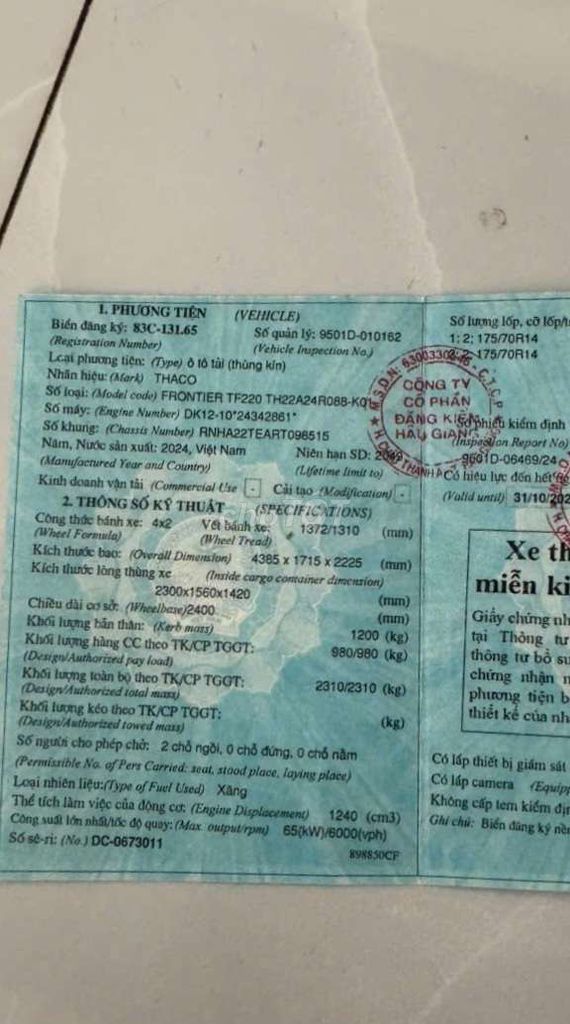 1. PHƯƠNG TIỆN (VEHICLE)
Biển đăng ký: 83C-131.65 Số quản lý: 9501D-010162
(Registration Number) (Vehicle Inspection No.)
Loại phương tiện: (Type) ô tô tải (thùng kín)
Nhãn hiệu: (Mark) THACO
Số loại: (Model code) FRONTIER TF220 TH22A24R088-KQT
Số máy: (Engine Number) DK12-10*24342861*
Số khung: (Chassis Number) RNHA22TEART098515
Năm, Nước sản xuất: 2024, Việt Nam Niên hạn SD: 2049
(Manufactured Year and Country) (Lifetime limit to)
Kinh doanh vận tải (Commercial Use - Cải tạo (Modification) -
2. THÔNG SỐ KỸ THUẬT (SPECIFICATIONS)
Công thức bánh xe: 4x2 Vết bánh xe: 1372/1310 (mm)
(Wheel Formula) (Wheel Tread)
Kích thước bao: (Overall Dimension) 4385 x 1715 x 2225 (mm)
Kích thước lòng thùng xe (Inside cargo container dimension)
2300x1560x1420 (mm)
Chiều dài cơ sở: (Wheelbase)2400 (mm)
Khối lượng bản thân: (Kerb mass) 1200 (kg)
Khối lượng hàng CC theo TK/CP TGGT: 980/980 (kg)
(Design/Authorized pay load)
Khối lượng toàn bộ theo TK/CP TGGT: 2310/2310 (kg)
(Design/Authorized total mass)
Khối lượng kéo theo TK/CP TGGT: (kg)
(Design/Authorized towed mass)
Số người cho phép chở: 2 chỗ ngồi, 0 chỗ đứng, 0 chỗ nằm
(Permissible No. of Pers Carried: seat, stood place, laying place)
Loại nhiên liệu:(Type of Fuel Used) Xăng
Thể tích làm việc của động cơ: (Engine Displacement) 1240 (cm3)
Công suất lớn nhất/tốc độ quay:(Max. output/rpm) 65(kW)/6000(vph)
Số sê-ri: (No.) DC-0673011
898850CF
Số lượng lốp, cỡ lốp/t
1: 2; 175/70R14
2: 2; 175/70R14
CÔNG TY
CỔ PHẦN
ĐĂNG KIỂM
HẬU GIANG
Số phiếu kiểm định
(Inspection Report No)
9501D-06469/24
Có hiệu lực đến hết
(Valid until) 31/10/202
Xe th
miễn ki
Giấy chứng nh
tại Thông tư
thông tư bổ su
chứng nhận n
phương tiện b
thiết kế của nh
Có lắp thiết bị giám sát
Có lắp camera (Equipp
Không cấp tem kiểm địn
Ghi chú: Biển đăng ký nề